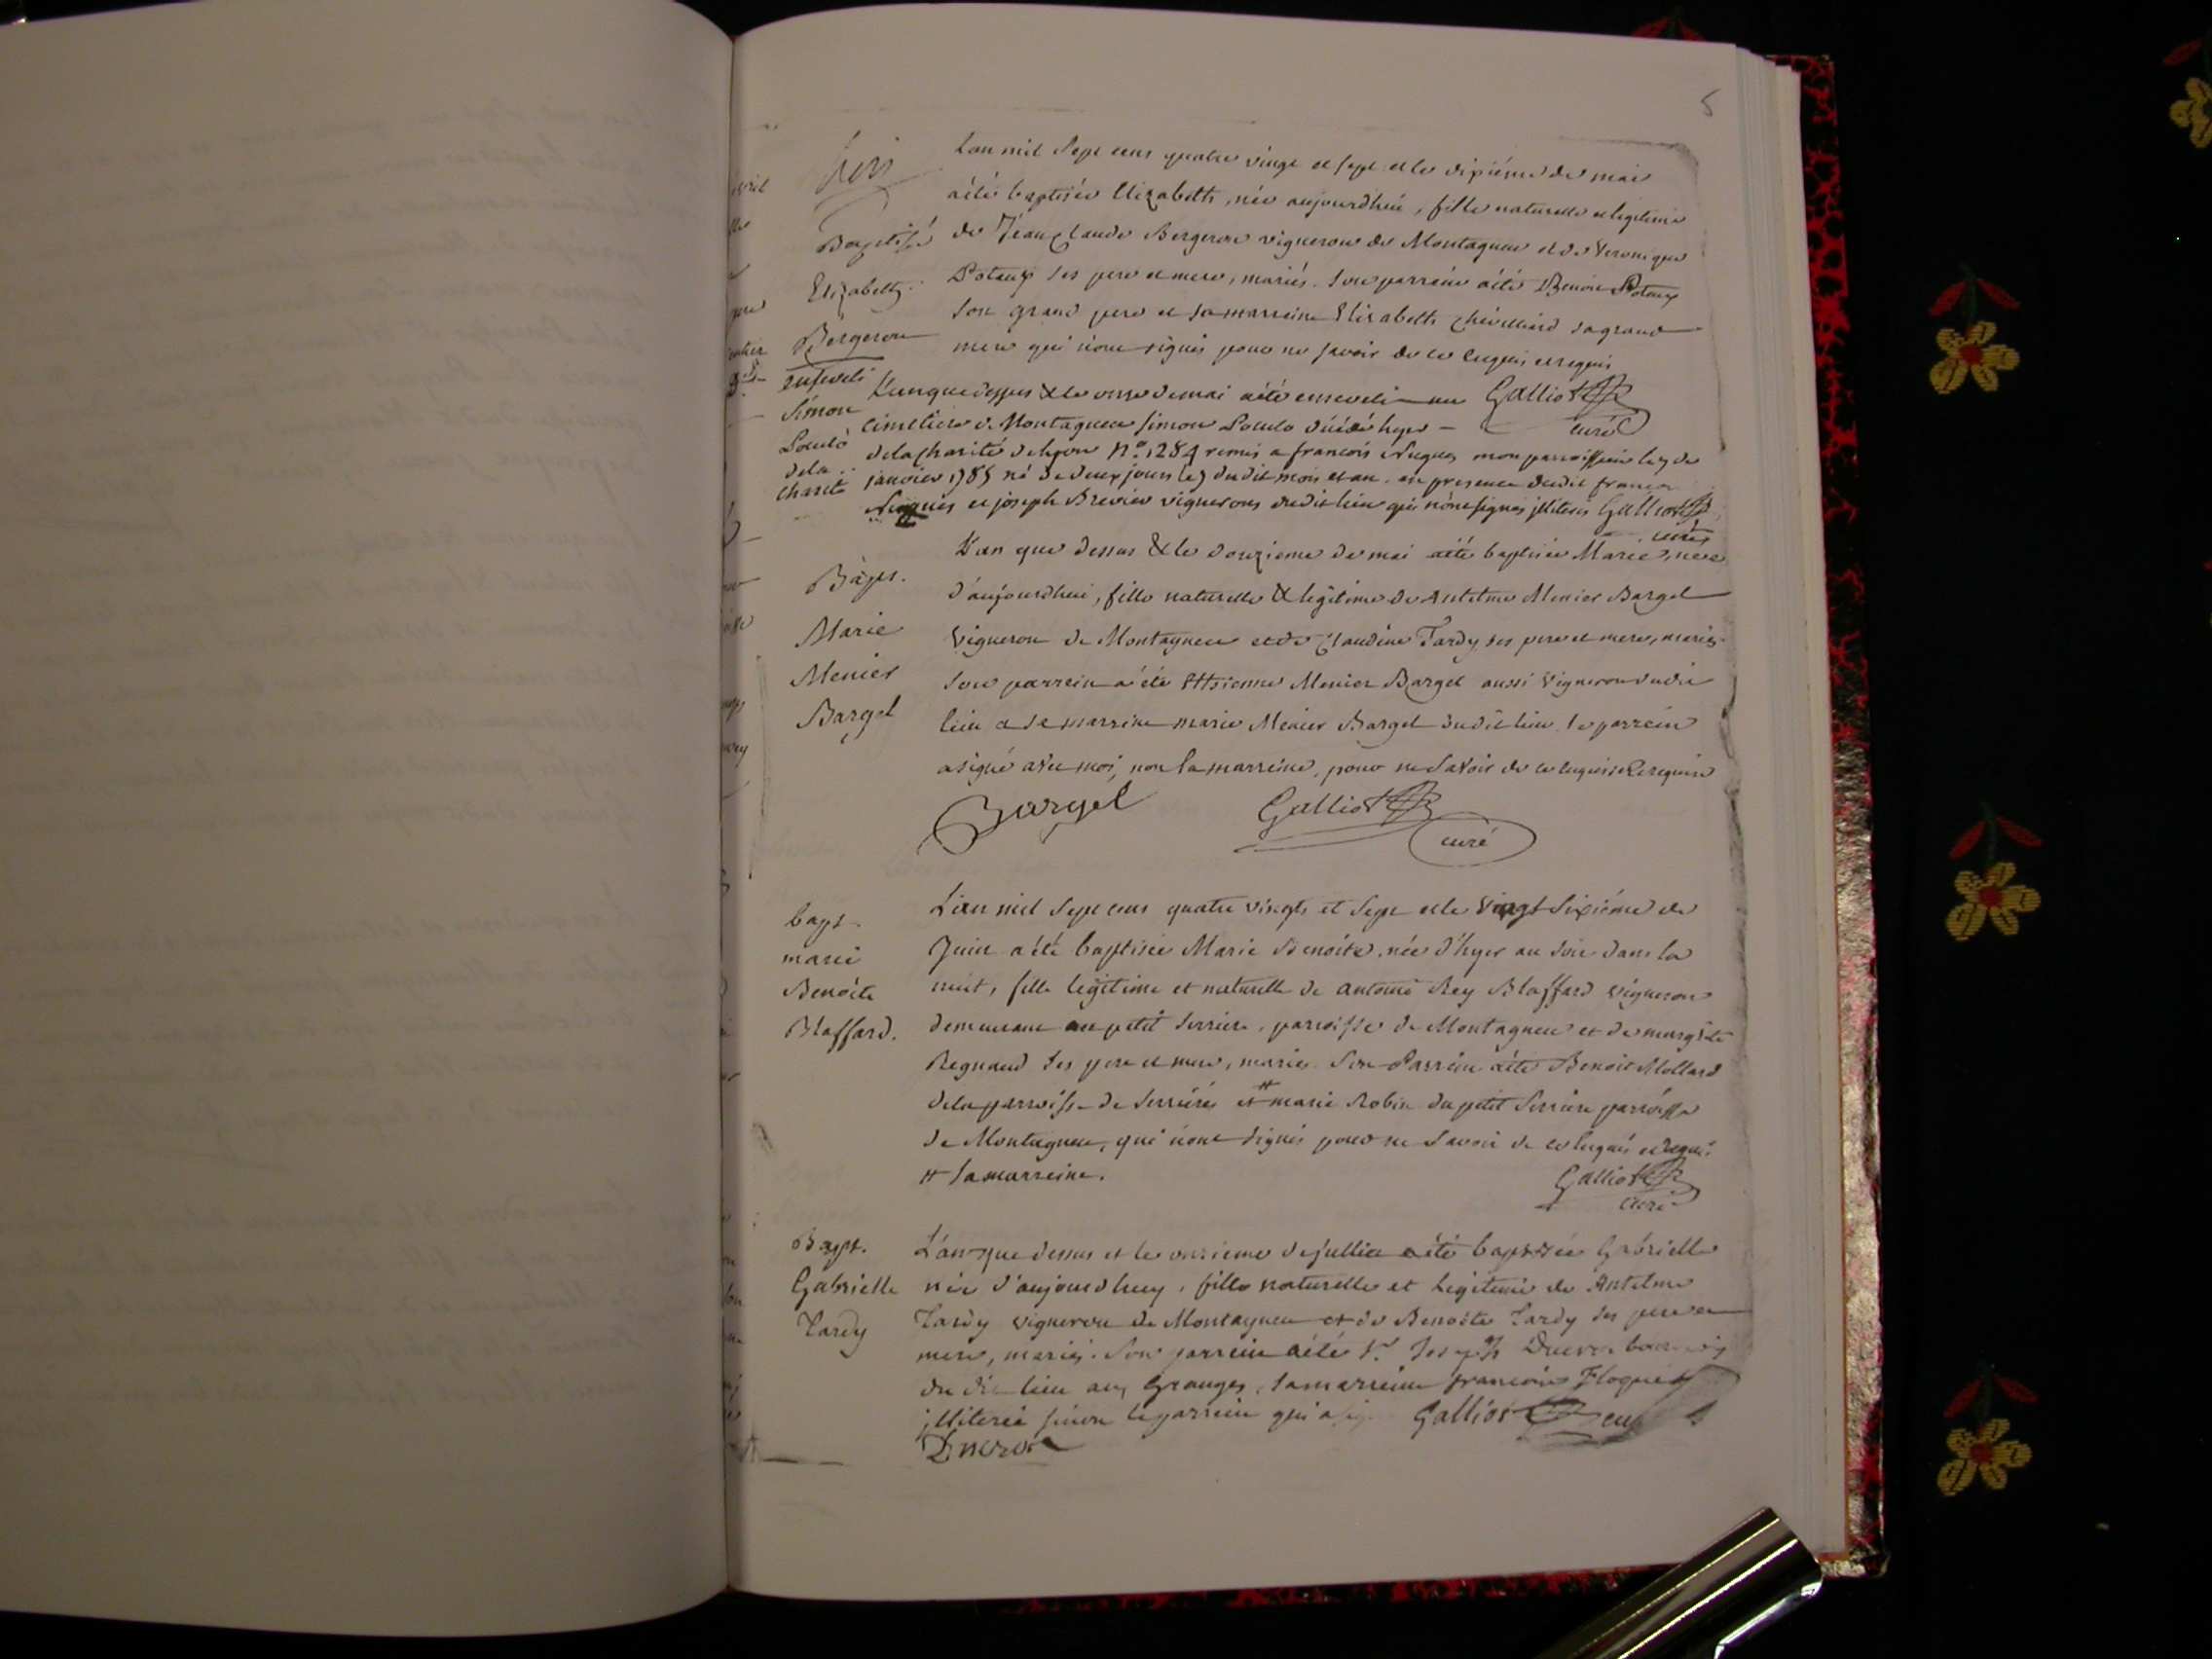 5
L'an mil sept cens quatre vingt et sept et le dixiéme de mai
Baptisé
Elizabeth
Bergeron
a été baptisée Elizabeth, née aujourdhui, fille naturelle et legitime
de Jean Claude Bergeron vigneron de Montagneu et de Veronique
Potaux ses pere et mere, mariés. Son parrein a été Benoit Potaux
son grand pere et sa marreine Elizabeth Chevelliard sa grand
mere qui n'ont signés pour ne savoir de ce enquis et requis
Galliot
curé
enseveli
Simon
Loulo
de la
charité
L'an que dessus & le onze de mai a été enseveli au
cimetiere de Montagneu Simon Loulo décédé hyer
de la charité de lyon N.o 1284 remis a francois Nugues mon parroissien le 9 de
janvier 1785 né de deux jours le 7 dudit mois et an. en presence dudit francois
Nugues et joseph Brevier vignerons dudit lieu qui n'ont signés illiterés Galliot
curé
Bapt.
Marie
Menier
Bargel
L'an que dessus & le douzieme de mai a été baptisée Marie, née
d'aujourdhui, fille naturelle & legitime de Antelme Menier Bargel
vigneron de Montagneu et de Claudine Tardy ses pere et mere, mariés
son parrein a été Etienne Menier Bargel aussi vigneron dudit
lieu et sa marreine marie Menier Bargel dudit lieu. le parrein
a signé avec moi, non la marreine, pour ne savoir de ce enquise & requise
Bargel
Galliot
curé
bapt.
marie
Benoite
Blaffard.
L'an mil sept cens quatre vingts et sept et le vingt sixiéme de
Juin a été baptisée Marie Benoite, née d'hyer au soir dans la
nuit, fille legitime et naturelle de antoine Rey Blaffard vigneron
demeurant au petit serriere, parroisse de Montagneu et de margte
Regnaud ses pere et mere, mariés. Son Parrein a été Benoit Mollard
de la parroisse de serriéres et # marie Robin du petit serriere parroisse
de Montagneu, qui n'ont signés pour ne savoir de ce enquis et requis
# sa marreine.
Galliot
curé
Bapt.
Gabrielle
Tardy
L'an que dessus et le onzieme de juillet a été baptisée Gabrielle
née d'aujourdhuy, fille naturelle et legitime de Antelme
Tardy vigneron de Montagneu et de Benoite Tardy ses pere et
mere, mariés. Son parrein a été Sr. Joseph Ducros bourgeois
du dit lieu aux Granges, sa marreine francoise Floquet
illiterée sinon le parrein qui a signé Galliot curé
Ducros